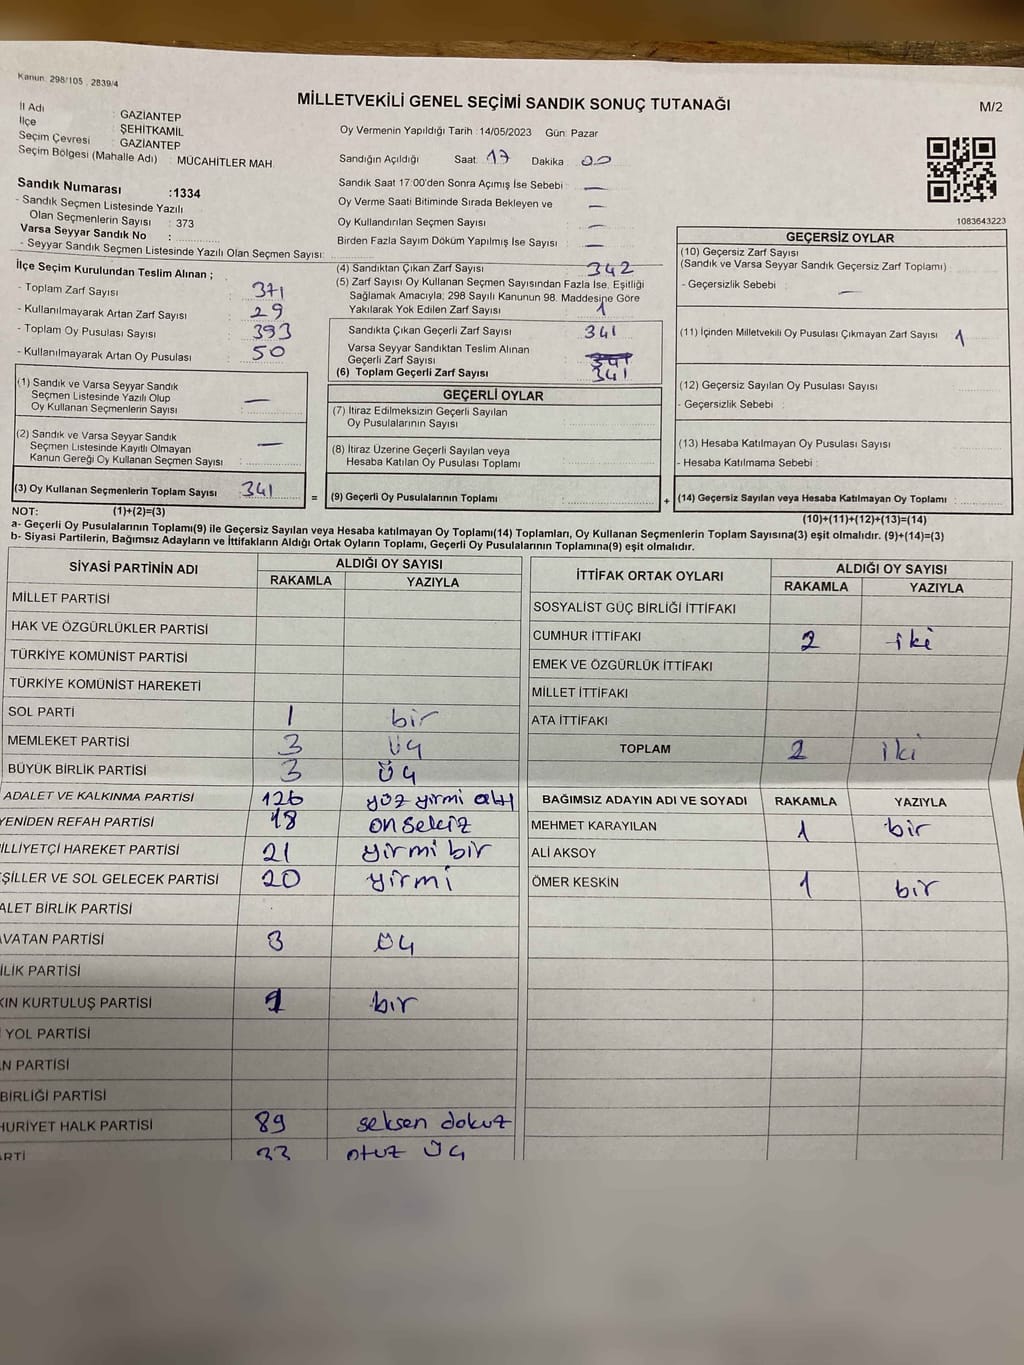 Kanun: 298/105 , 2839/4
MİLLETVEKİLİ GENEL SEÇİMİ SANDIK SONUÇ TUTANAĞI
M/2
İl Adı : GAZİANTEP
İlçe : ŞEHİTKAMİL
Seçim Çevresi : GAZİANTEP
Seçim Bölgesi (Mahalle Adı) : MÜCAHİTLER MAH.
Oy Vermenin Yapıldığı Tarih : 14/05/2023 Gün: Pazar
Sandığın Açıldığı Saat: 17 Dakika : 00
Sandık Saat 17:00'den Sonra Açımış İse Sebebi : —
Oy Verme Saati Bitiminde Sırada Bekleyen ve —
Oy Kullandırılan Seçmen Sayısı : —
Birden Fazla Sayım Döküm Yapılmış İse Sayısı : —
1083643223
Sandık Numarası :1334
- Sandık Seçmen Listesinde Yazılı
Olan Seçmenlerin Sayısı : 373
Varsa Seyyar Sandık No :
- Seyyar Sandık Seçmen Listesinde Yazılı Olan Seçmen Sayısı:
İlçe Seçim Kurulundan Teslim Alınan ;
- Toplam Zarf Sayısı : 371
- Kullanılmayarak Artan Zarf Sayısı : 29
- Toplam Oy Pusulası Sayısı : 393
- Kullanılmayarak Artan Oy Pusulası : 50
(1) Sandık ve Varsa Seyyar Sandık
Seçmen Listesinde Yazılı Olup
Oy Kullanan Seçmenlerin Sayısı : —
(2) Sandık ve Varsa Seyyar Sandık
Seçmen Listesinde Kayıtlı Olmayan
Kanun Gereği Oy Kullanan Seçmen Sayısı : —
(3) Oy Kullanan Seçmenlerin Toplam Sayısı : 341
(1)+(2)=(3)
(4) Sandıktan Çıkan Zarf Sayısı : 342
(5) Zarf Sayısı Oy Kullanan Seçmen Sayısından Fazla İse, Eşitliği
Sağlamak Amacıyla; 298 Sayılı Kanunun 98. Maddesine Göre
Yakılarak Yok Edilen Zarf Sayısı : 1
Sandıkta Çıkan Geçerli Zarf Sayısı : 341
Varsa Seyyar Sandıktan Teslim Alınan
Geçerli Zarf Sayısı : 341
(6) Toplam Geçerli Zarf Sayısı : 341
GEÇERLİ OYLAR
(7) İtiraz Edilmeksizin Geçerli Sayılan
Oy Pusulalarının Sayısı :
(8) İtiraz Üzerine Geçerli Sayılan veya
Hesaba Katılan Oy Pusulası Toplamı :
= (9) Geçerli Oy Pusulalarının Toplamı :
GEÇERSİZ OYLAR
(10) Geçersiz Zarf Sayısı
(Sandık ve Varsa Seyyar Sandık Geçersiz Zarf Toplamı) :
- Geçersizlik Sebebi : —
(11) İçinden Milletvekili Oy Pusulası Çıkmayan Zarf Sayısı : 1
(12) Geçersiz Sayılan Oy Pusulası Sayısı :
- Geçersizlik Sebebi :
(13) Hesaba Katılmayan Oy Pusulası Sayısı :
- Hesaba Katılmama Sebebi :
+ (14) Geçersiz Sayılan veya Hesaba Katılmayan Oy Toplamı :
(10)+(11)+(12)+(13)=(14)
NOT:
a- Geçerli Oy Pusulalarının Toplamı(9) ile Geçersiz Sayılan veya Hesaba katılmayan Oy Toplamı(14) Toplamları, Oy Kullanan Seçmenlerin Toplam Sayısına(3) eşit olmalıdır. (9)+(14)=(3)
b- Siyasi Partilerin, Bağımsız Adayların ve İttifakların Aldığı Ortak Oyların Toplamı, Geçerli Oy Pusulalarının Toplamına(9) eşit olmalıdır.
SİYASİ PARTİNİN ADI ALDIĞI OY SAYISI
RAKAMLA YAZIYLA
MİLLET PARTİSİ
HAK VE ÖZGÜRLÜKLER PARTİSİ
TÜRKİYE KOMÜNİST PARTİSİ
TÜRKİYE KOMÜNİST HAREKETİ
SOL PARTİ 1 bir
MEMLEKET PARTİSİ 3 üç
BÜYÜK BİRLİK PARTİSİ 3 üç
ADALET VE KALKINMA PARTİSİ 126 yüz yirmi altı
YENİDEN REFAH PARTİSİ 18 on sekiz
İLLİYETÇİ HAREKET PARTİSİ 21 yirmi bir
ŞİLLER VE SOL GELECEK PARTİSİ 20 yirmi
ALET BİRLİK PARTİSİ
VATAN PARTİSİ 3 üç
İLİK PARTİSİ
KIN KURTULUŞ PARTİSİ 1 bir
YOL PARTİSİ
N PARTİSİ
BİRLİĞİ PARTİSİ
HURİYET HALK PARTİSİ 89 seksen dokuz
ARTİ 33 otuz üç
İTTİFAK ORTAK OYLARI ALDIĞI OY SAYISI
RAKAMLA YAZIYLA
SOSYALİST GÜÇ BİRLİĞİ İTTİFAKI
CUMHUR İTTİFAKI 2 iki
EMEK VE ÖZGÜRLÜK İTTİFAKI
MİLLET İTTİFAKI
ATA İTTİFAKI
TOPLAM 2 iki
BAĞIMSIZ ADAYIN ADI VE SOYADI RAKAMLA YAZIYLA
MEHMET KARAYILAN 1 bir
ALİ AKSOY
ÖMER KESKİN 1 bir